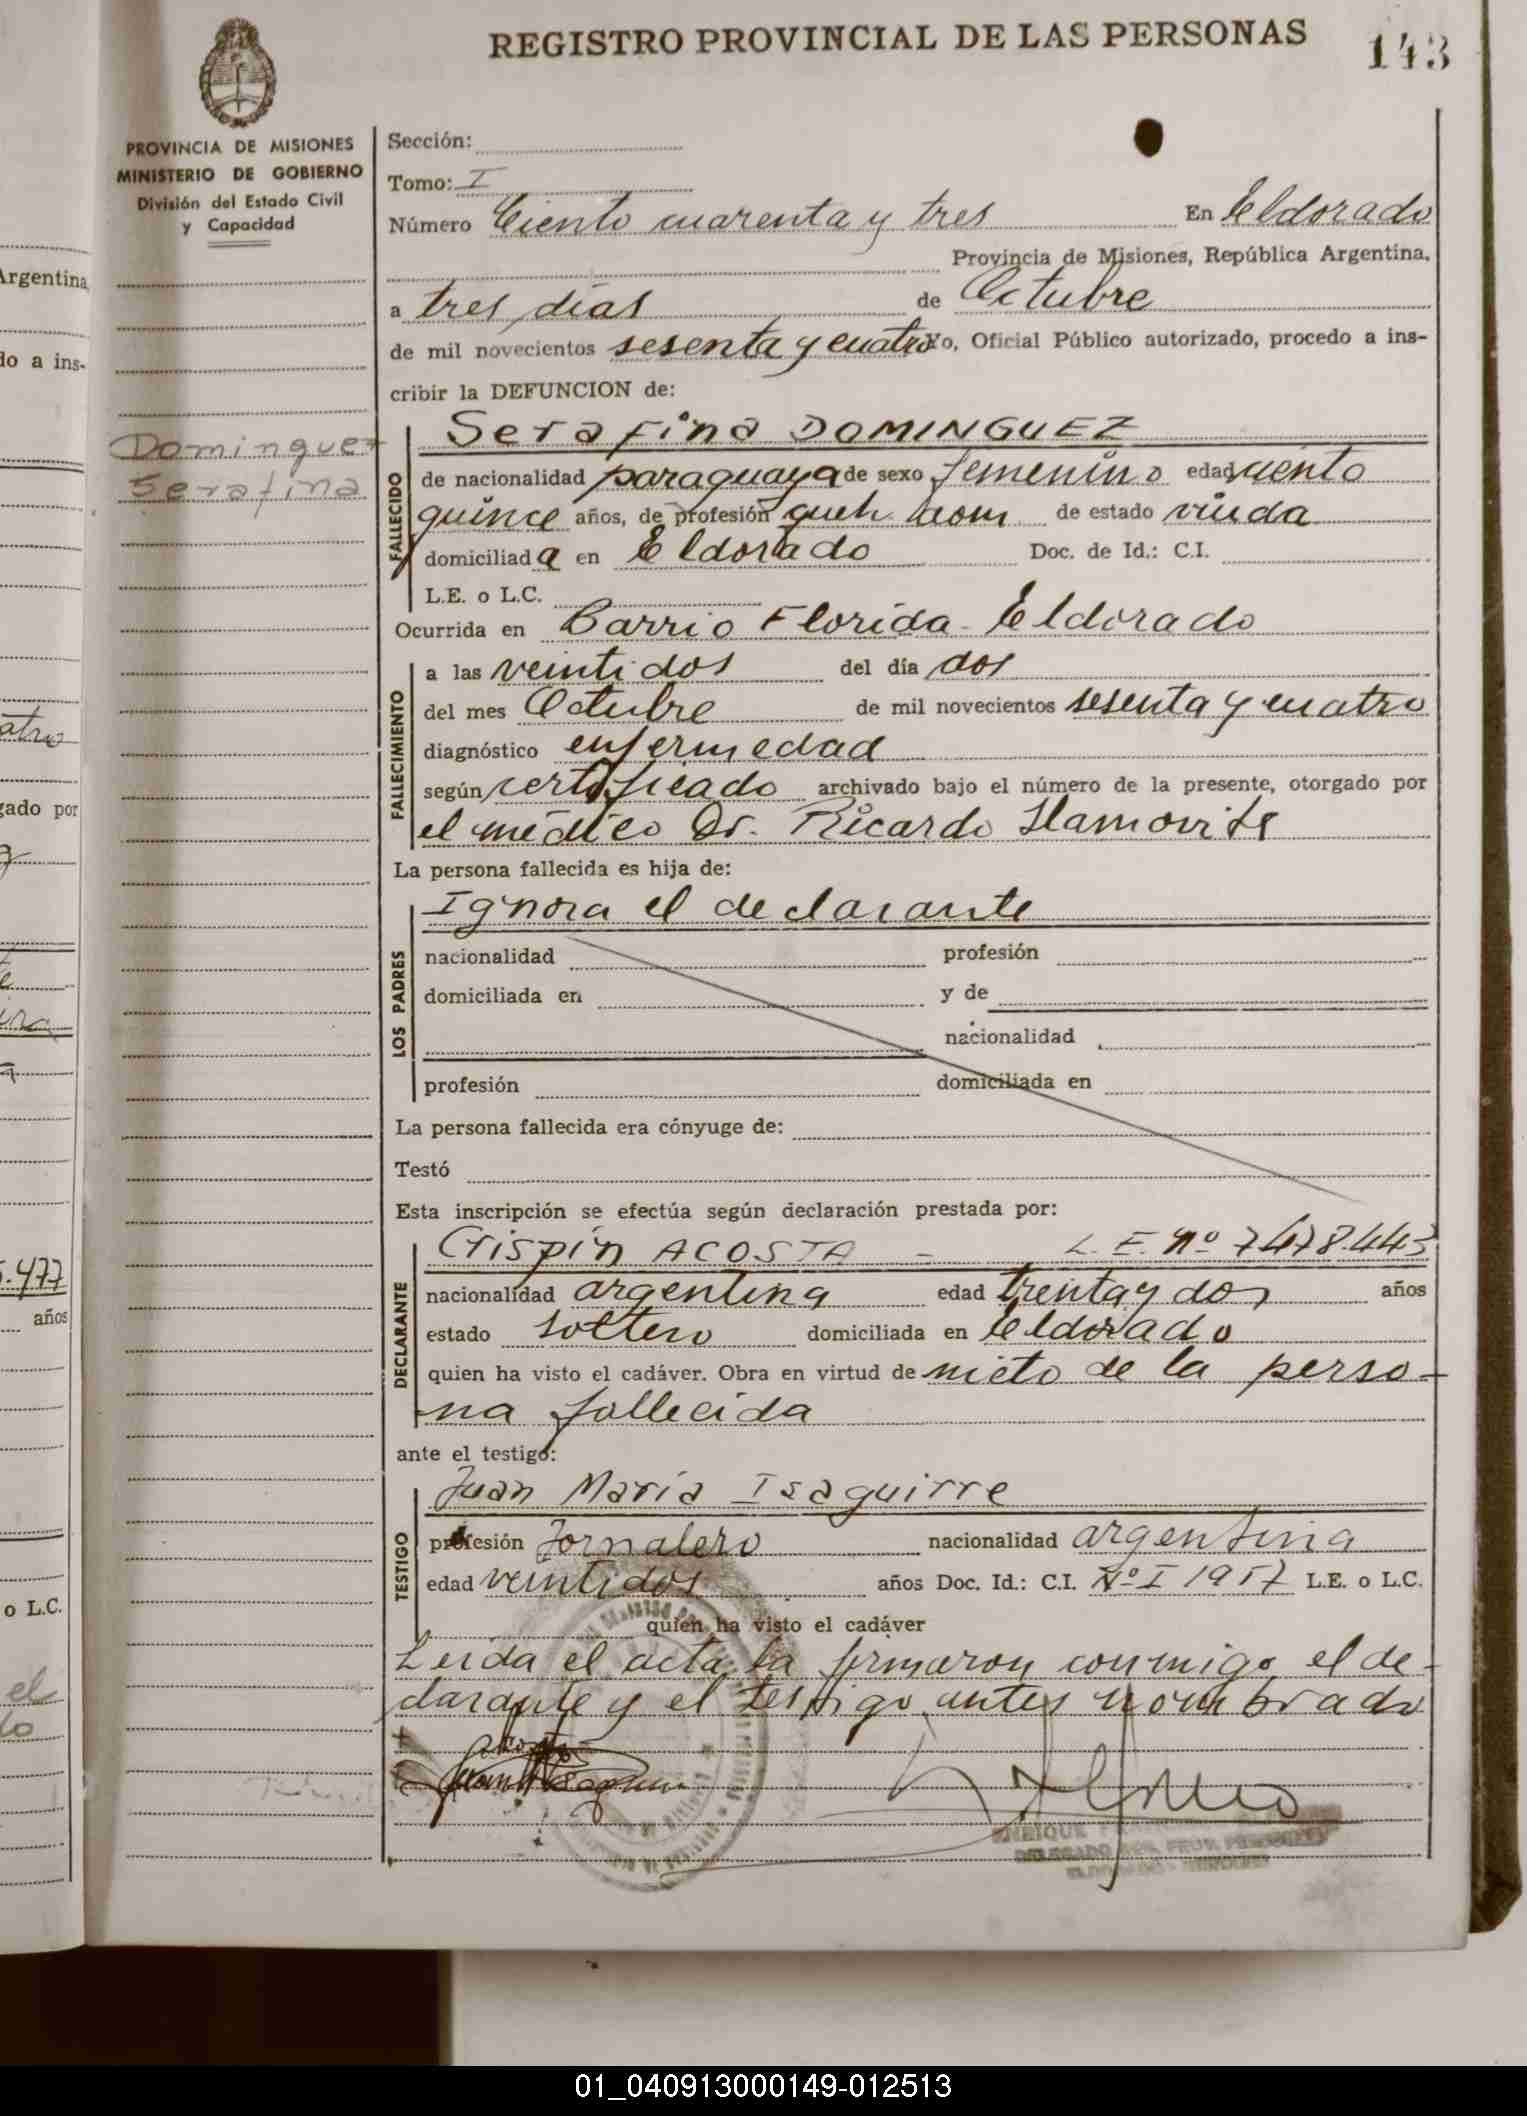 REGISTRO PROVINCIAL DE LAS PERSONAS
143
PROVINCIA DE MISIONES
MINISTERIO DE GOBIERNO
División del Estado Civil
y Capacidad
Dominguez
Serafina
Sección:
Tomo: I
Número Ciento cuarenta y tres En Eldorado
Provincia de Misiones, República Argentina,
a tres días de Octubre
de mil novecientos sesenta y cuatro Yo, Oficial Público autorizado, procedo a ins-
cribir la DEFUNCION de:
Serafina DOMINGUEZ
FALLECIDO
de nacionalidad paraguaya de sexo femenino edad ciento
quince años, de profesión queh. dom. de estado viuda
domiciliada en Eldorado Doc. de Id.: C.I.
L.E. o L.C.
Ocurrida en Barrio Florida - Eldorado
FALLECIMIENTO
a las veintidos del día dos
del mes Octubre de mil novecientos sesenta y cuatro
diagnóstico enfermedad
según certificado archivado bajo el número de la presente, otorgado por
el médico Dr. Ricardo
La persona fallecida es hija de:
LOS PADRES
Ignora el declarante
nacionalidad profesión
domiciliada en y de
nacionalidad
profesión domiciliada en
La persona fallecida era cónyuge de:
Testó
Esta inscripción se efectúa según declaración prestada por:
DECLARANTE
Crispín ACOSTA - L.E. nº 7478.443
nacionalidad argentina edad treinta y dos años
estado soltero domiciliada en Eldorado
quien ha visto el cadáver. Obra en virtud de nieto de la perso-
na fallecida
ante el testigo:
TESTIGO
Juan María Isaguirre
profesión Jornalero nacionalidad argentina
edad veintidos años Doc. Id.: C.I. Nº I 1957 L.E. o L.C.
quien ha visto el cadáver
Leída el acta la firmaron conmigo el de-
clarante y el testigo antes nombrado
Argentina,
do a ins-
gado por
.477
años
o L.C.
el
01_040913000149-012513